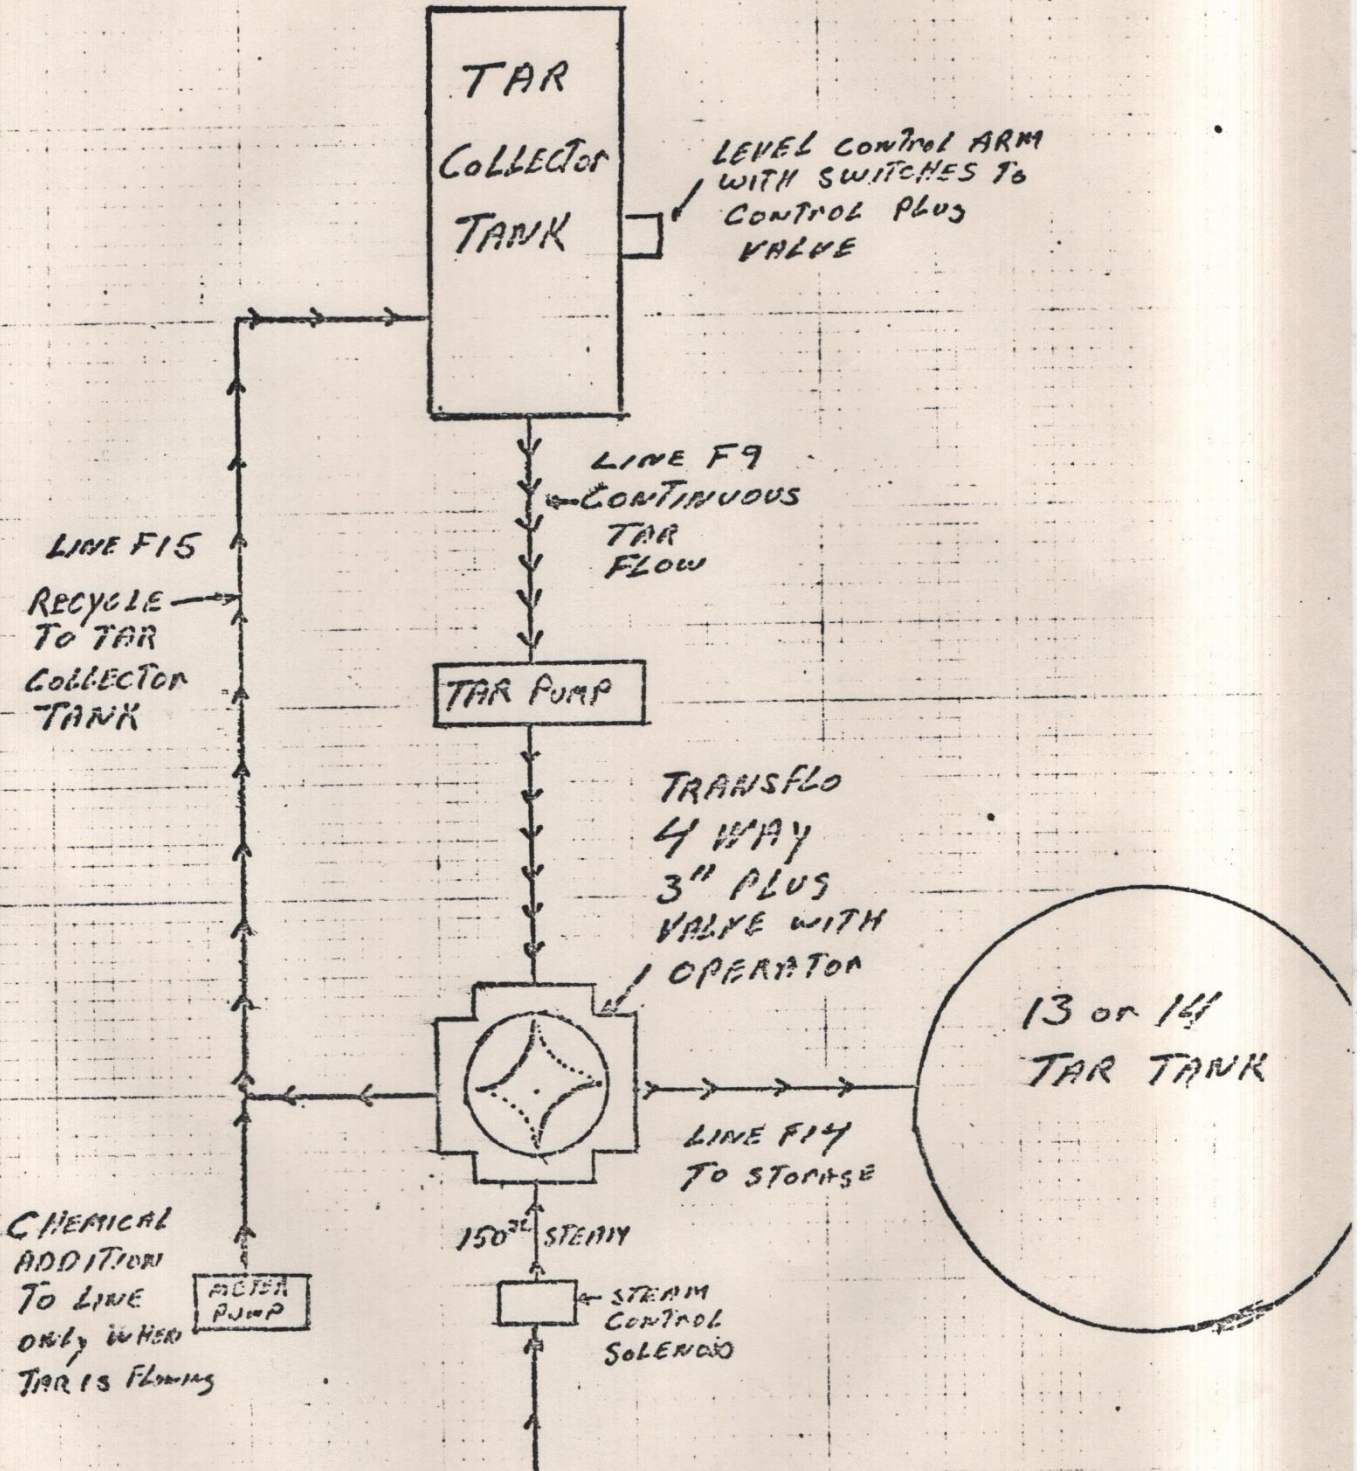 TAR
COLLECTOR
TANK
LEVEL CONTROL ARM
WITH SWITCHES TO
CONTROL PLUG
VALVE
LINE F9
CONTINUOUS
TAR
FLOW
LINE F15
RECYCLE
TO TAR
COLLECTOR
TANK
TAR PUMP
TRANSFLO
4 WAY
3" PLUG
VALVE WITH
OPERATOR
13 or 14
TAR TANK
LINE F14
TO STORAGE
150# STEAM
CHEMICAL
ADDITION
TO LINE
ONLY WHEN
TAR IS FLOWING
METER
PUMP
STEAM
CONTROL
SOLENOID